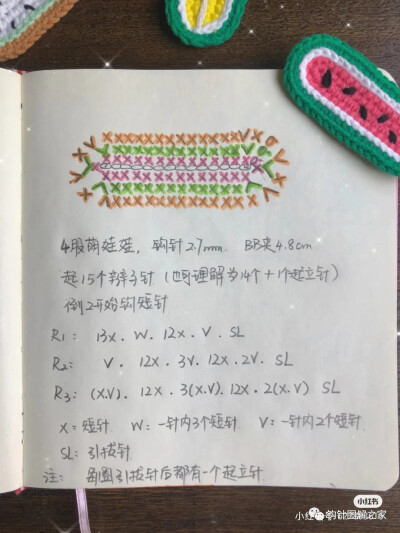 4股萌娃娃, 钩针2.7mm. BB夹4.8cm
起15个辫子针 (也可理解为14个+1个起立针)
倒2开始钩短针
R1: 13X. W. 12X. V. SL
R2: V. 12X. 3V. 12X. 2V. SL
R3: (X.V). 12X. 3(X.V). 12X. 2(X.V) SL
X=短针 W=一针内3个短针 V=一针内2个短针
SL: 引拔针
注: 每圈引拔针后都有一个起立针
小红书
钩针图解之家